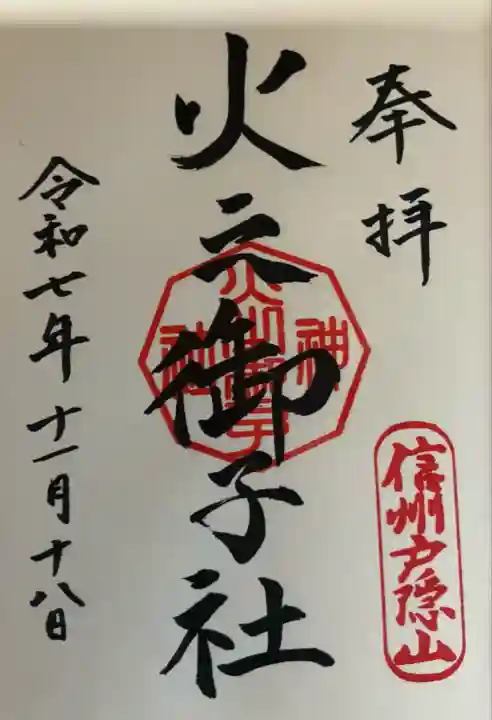 奉拝
信州戸隠山
火之御子社
令和七年十一月十八日